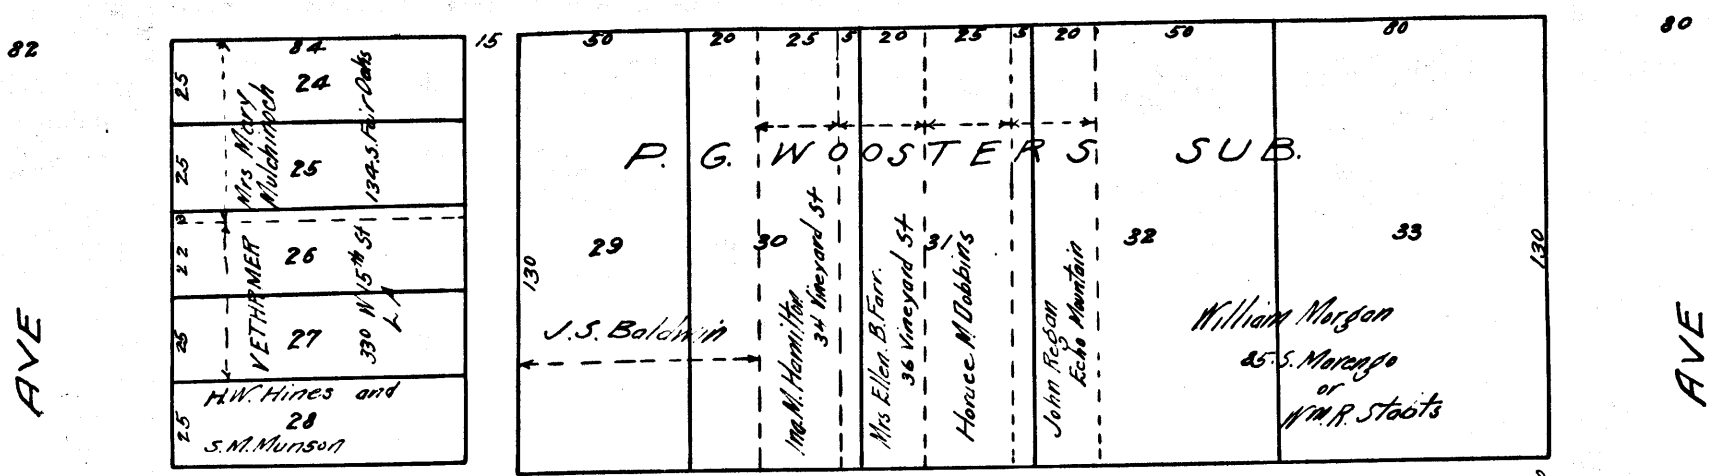 82
AVE
84
25
24
Mrs Mary
Mulchinoch
134.S. Fair Oaks
25
25
3
22
26
VETHAMER
330 W 15th St
L A
25
27
H.W. Hines and
25
28
S.M. Munson
15
50
20
25
5
20
25
5
20
50
80
P. G. WOOSTERS SUB.
130
29
30
31
32
33
130
J.S. Baldwin
Ina. M. Hamilton
34 Vineyard St
Mrs Ellen. B. Farr.
36 Vineyard St
Horace M Dobbins
John Regan
Echo Mountain
William Morgan
85. S. Marengo
or
WM. R. Staats
80
AVE